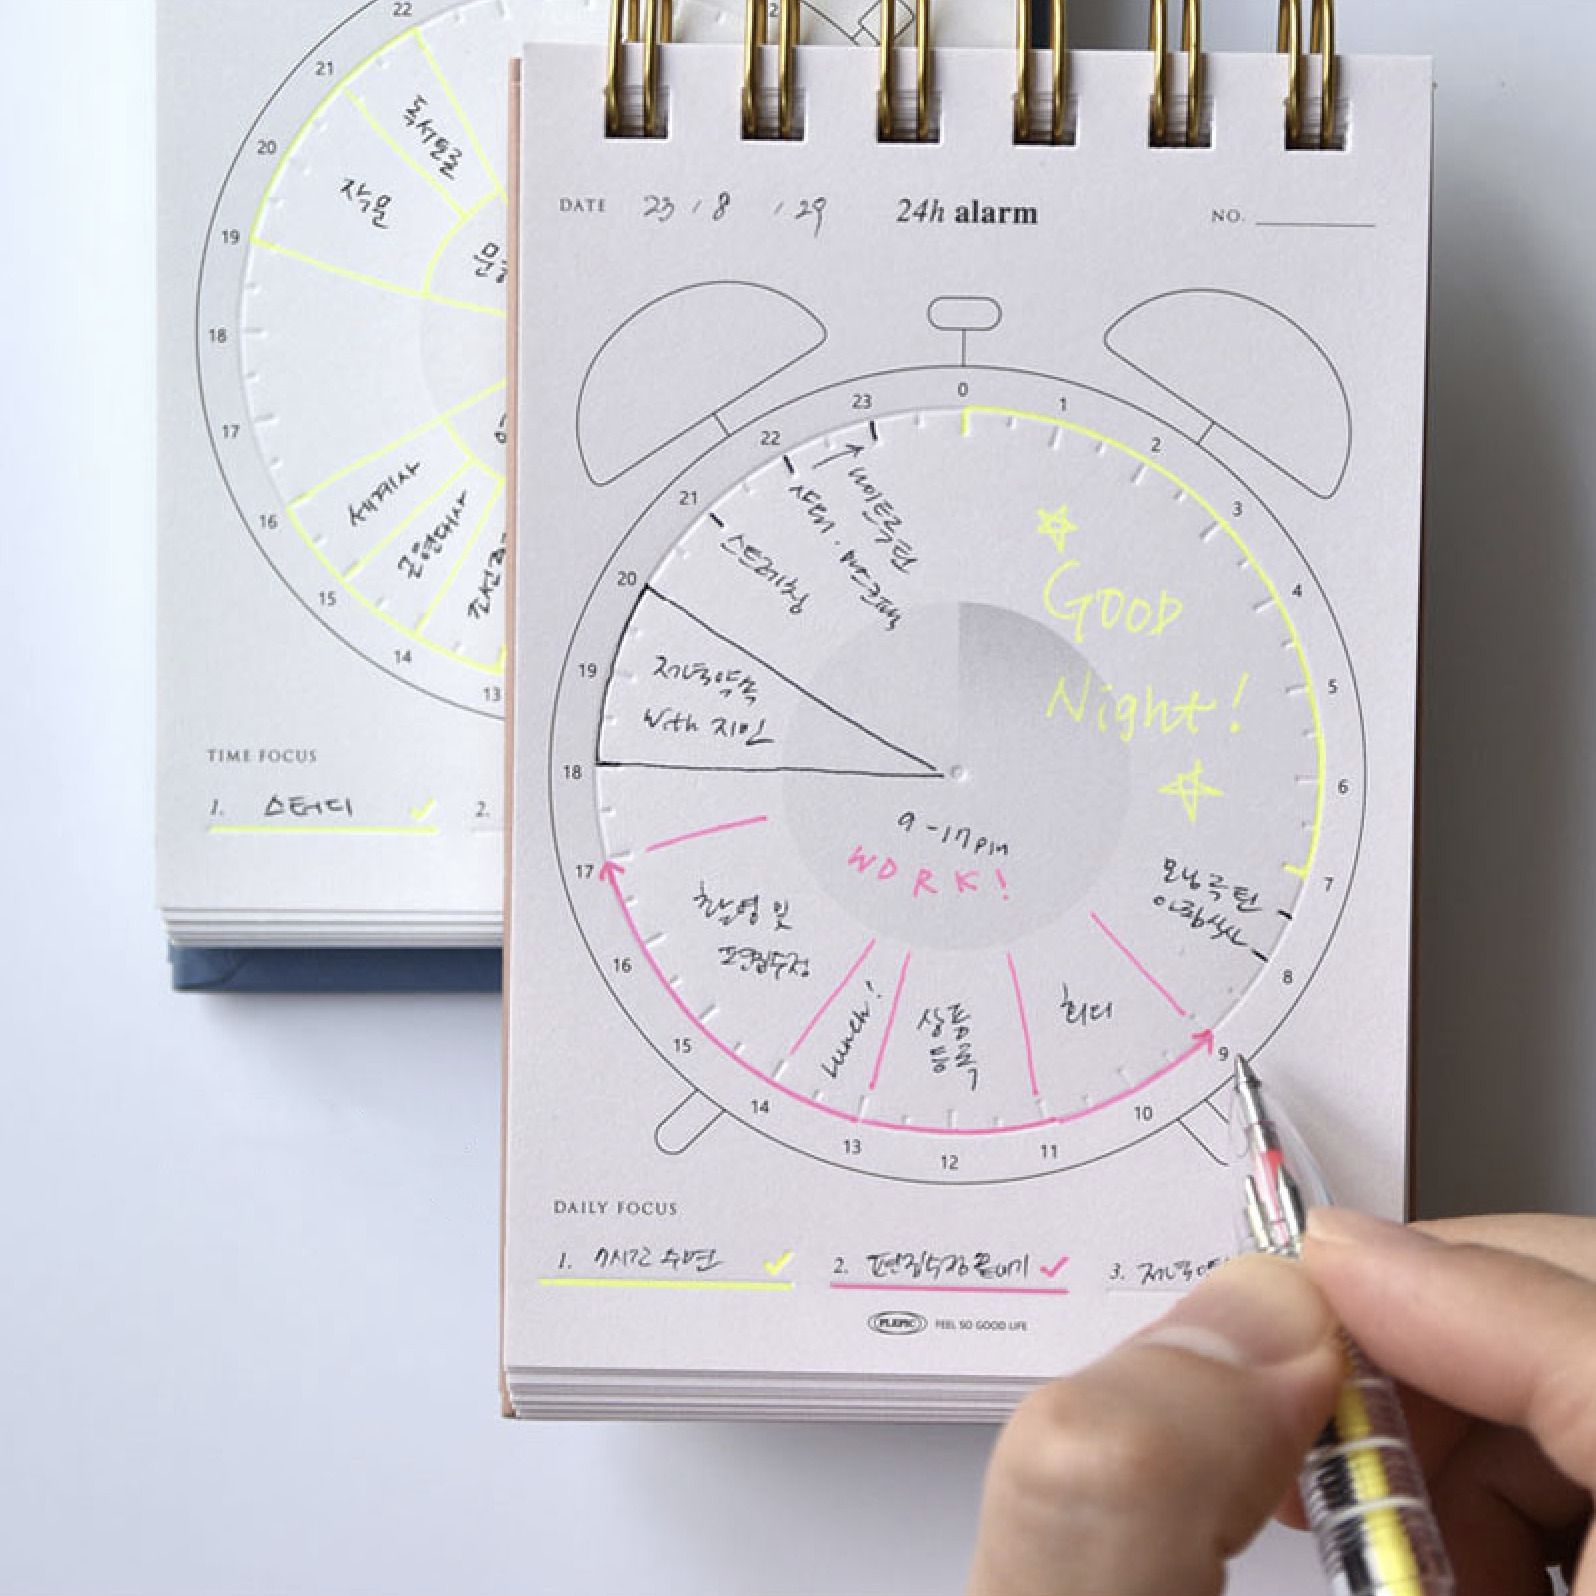 22
21
20
19
18
17
16
15
14
13
독서토론
작문
세계사
근현대사
TIME FOCUS
1. 스터디
2.
DATE 23 / 8 / 29
24h alarm
NO.
0
1
2
3
4
5
6
7
8
9
10
11
12
13
14
15
16
17
18
19
20
21
22
23
나이트루틴
샤워. 마스크팩
스트레칭
저녁약속
with 지인
GOOD
Night!
모닝루틴
아침식사
9-17pm
WORK!
회의
상품
등록
Lunch!
촬영 및
편집수정
DAILY FOCUS
1. 7시간 수면
2. 편집수정 끝내기
3. 저녁
PLEPIC FEEL SO GOOD LIFE